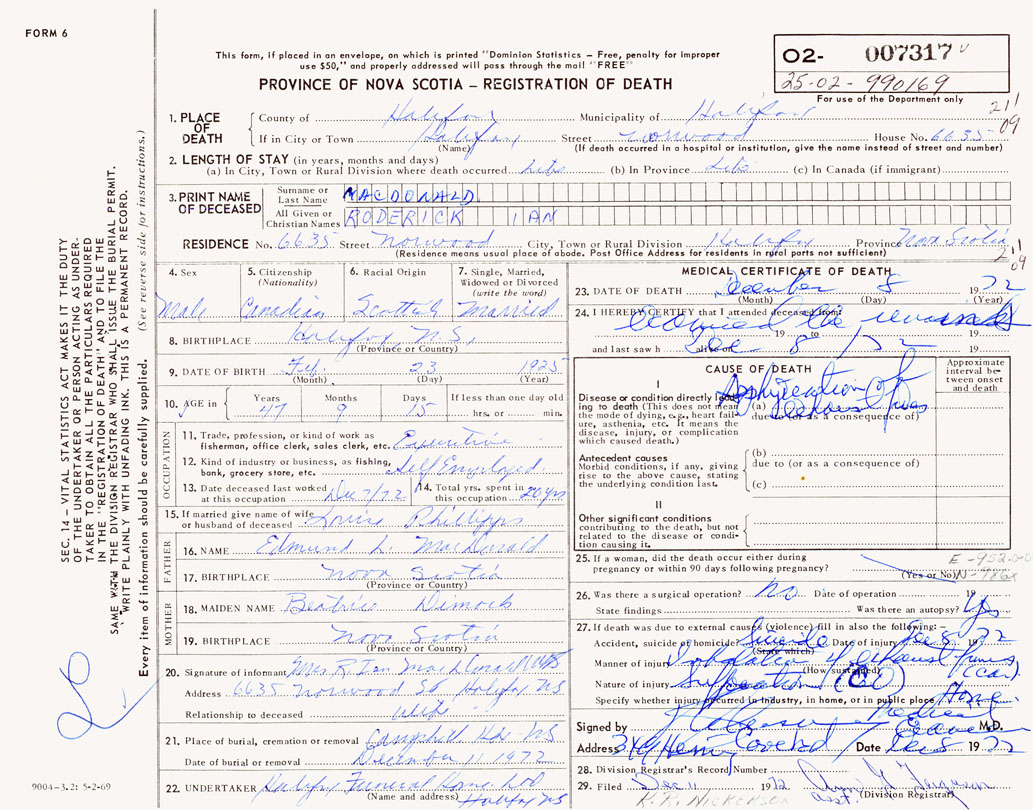 FORM 6
This form, if placed in an envelope, on which is printed "Dominion Statistics – Free, penalty for improper
use $50," and properly addressed will pass through the mail "FREE"
PROVINCE OF NOVA SCOTIA – REGISTRATION OF DEATH
O2- 007317
25-02-990169
For use of the Department only
1. PLACE OF DEATH
County of Halifax Municipality of Halifax
If in City or Town Halifax Street Norwood House No. 6635
(Name) (If death occurred in a hospital or institution, give the name instead of street and number)
2. LENGTH OF STAY (in years, months and days)
(a) In City, Town or Rural Division where death occurred Life (b) In Province Life (c) In Canada (if immigrant)
3. PRINT NAME OF DECEASED
Surname or Last Name MACDONALD
All Given or Christian Names RODERICK IAN
RESIDENCE No. 6635 Street Norwood City, Town or Rural Division Halifax Province Nova Scotia
(Residence means usual place of abode. Post Office Address for residents in rural parts not sufficient)
4. Sex
Male
5. Citizenship (Nationality)
Canadian
6. Racial Origin
Scottish
7. Single, Married, Widowed or Divorced (write the word)
Married
8. BIRTHPLACE Halifax N.S.
(Province or Country)
9. DATE OF BIRTH Feb. 23 1925
(Month) (Day) (Year)
10. AGE in Years Months Days If less than one day old
47 9 15 hrs. or min.
OCCUPATION
11. Trade, profession, or kind of work as fisherman, office clerk, sales clerk, etc. Executive
12. Kind of industry or business, as fishing, bank, grocery store, etc. Self Employed
13. Date deceased last worked at this occupation Dec 7/72
14. Total yrs. spent in this occupation 20 yrs
15. If married give name of wife or husband of deceased Louise Phillipps
FATHER
16. NAME Edmund L. MacDonald
17. BIRTHPLACE Nova Scotia
(Province or Country)
MOTHER
18. MAIDEN NAME Beatrice Dimock
19. BIRTHPLACE Nova Scotia
(Province or Country)
20. Signature of informant Mrs. R. Ian MacDonald
Address 6635 Norwood St Halifax NS
Relationship to deceased Wife
21. Place of burial, cremation or removal Camphill Hfx. NS
Date of burial or removal December 11 1972
22. UNDERTAKER Halifax Funeral Home Ltd
(Name and address) Halifax NS
MEDICAL CERTIFICATE OF DEATH
23. DATE OF DEATH December 8 1972
(Month) (Day) (Year)
24. I HEREBY CERTIFY that I attended deceased from
viewed the remains
19 to 19
and last saw h alive on Dec 8 /72 19
CAUSE OF DEATH
Approximate interval between onset and death
I
Disease or condition directly leading to death (This does not mean the mode of dying, e.g. heart failure, asthenia, etc. It means the disease, injury, or complication which caused death.)
(a) Asphyxiation of exhaust fumes
due to (or as a consequence of)
Antecedent causes
Morbid conditions, if any, giving rise to the above cause, stating the underlying condition last.
(b)
due to (or as a consequence of)
(c)
II
Other significant conditions contributing to the death, but not related to the disease or condition causing it.
25. If a woman, did the death occur either during pregnancy or within 90 days following pregnancy?
(Yes or No)
E-952.0
N-986x
26. Was there a surgical operation? No Date of operation 19
State findings Was there an autopsy? Yes
27. If death was due to external causes (violence) fill in also the following: –
Accident, suicide or homicide? Suicide Date of injury Dec 8 1972
(State which)
Manner of injury Inhalation of exhaust fumes (car)
(How sustained)
Nature of injury Suffocation (CO)
Specify whether injury occurred in industry, in home, or in public place Home
Signed by Medical Examiner M.D.
Address Date Dec 8 1972
28. Division Registrar's Record Number
29. Filed Dec 11 1972
(Division Registrar)
K. R. NICKERSON
SEC. 14 – VITAL STATISTICS ACT MAKES IT THE DUTY
OF THE UNDERTAKER OR PERSON ACTING AS UNDER-
TAKER TO OBTAIN ALL THE PARTICULARS REQUIRED
IN THE "REGISTRATION OF DEATH" AND TO FILE THE
SAME WITH THE DIVISION REGISTRAR WHO SHALL ISSUE THE BURIAL PERMIT.
WRITE PLAINLY WITH UNFADING INK. THIS IS A PERMANENT RECORD.
Every item of information should be carefully supplied. (See reverse side for instructions.)
9004-3.2: 5-2-69